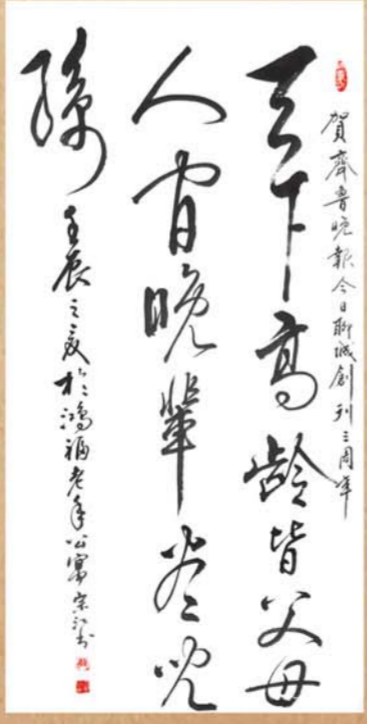 賀齊魯晚報今日聊城創刊三周年
天下高齡皆父母
人間晚輩尽兒
孫
壬辰之夏於鴻福老年公寓宗江书